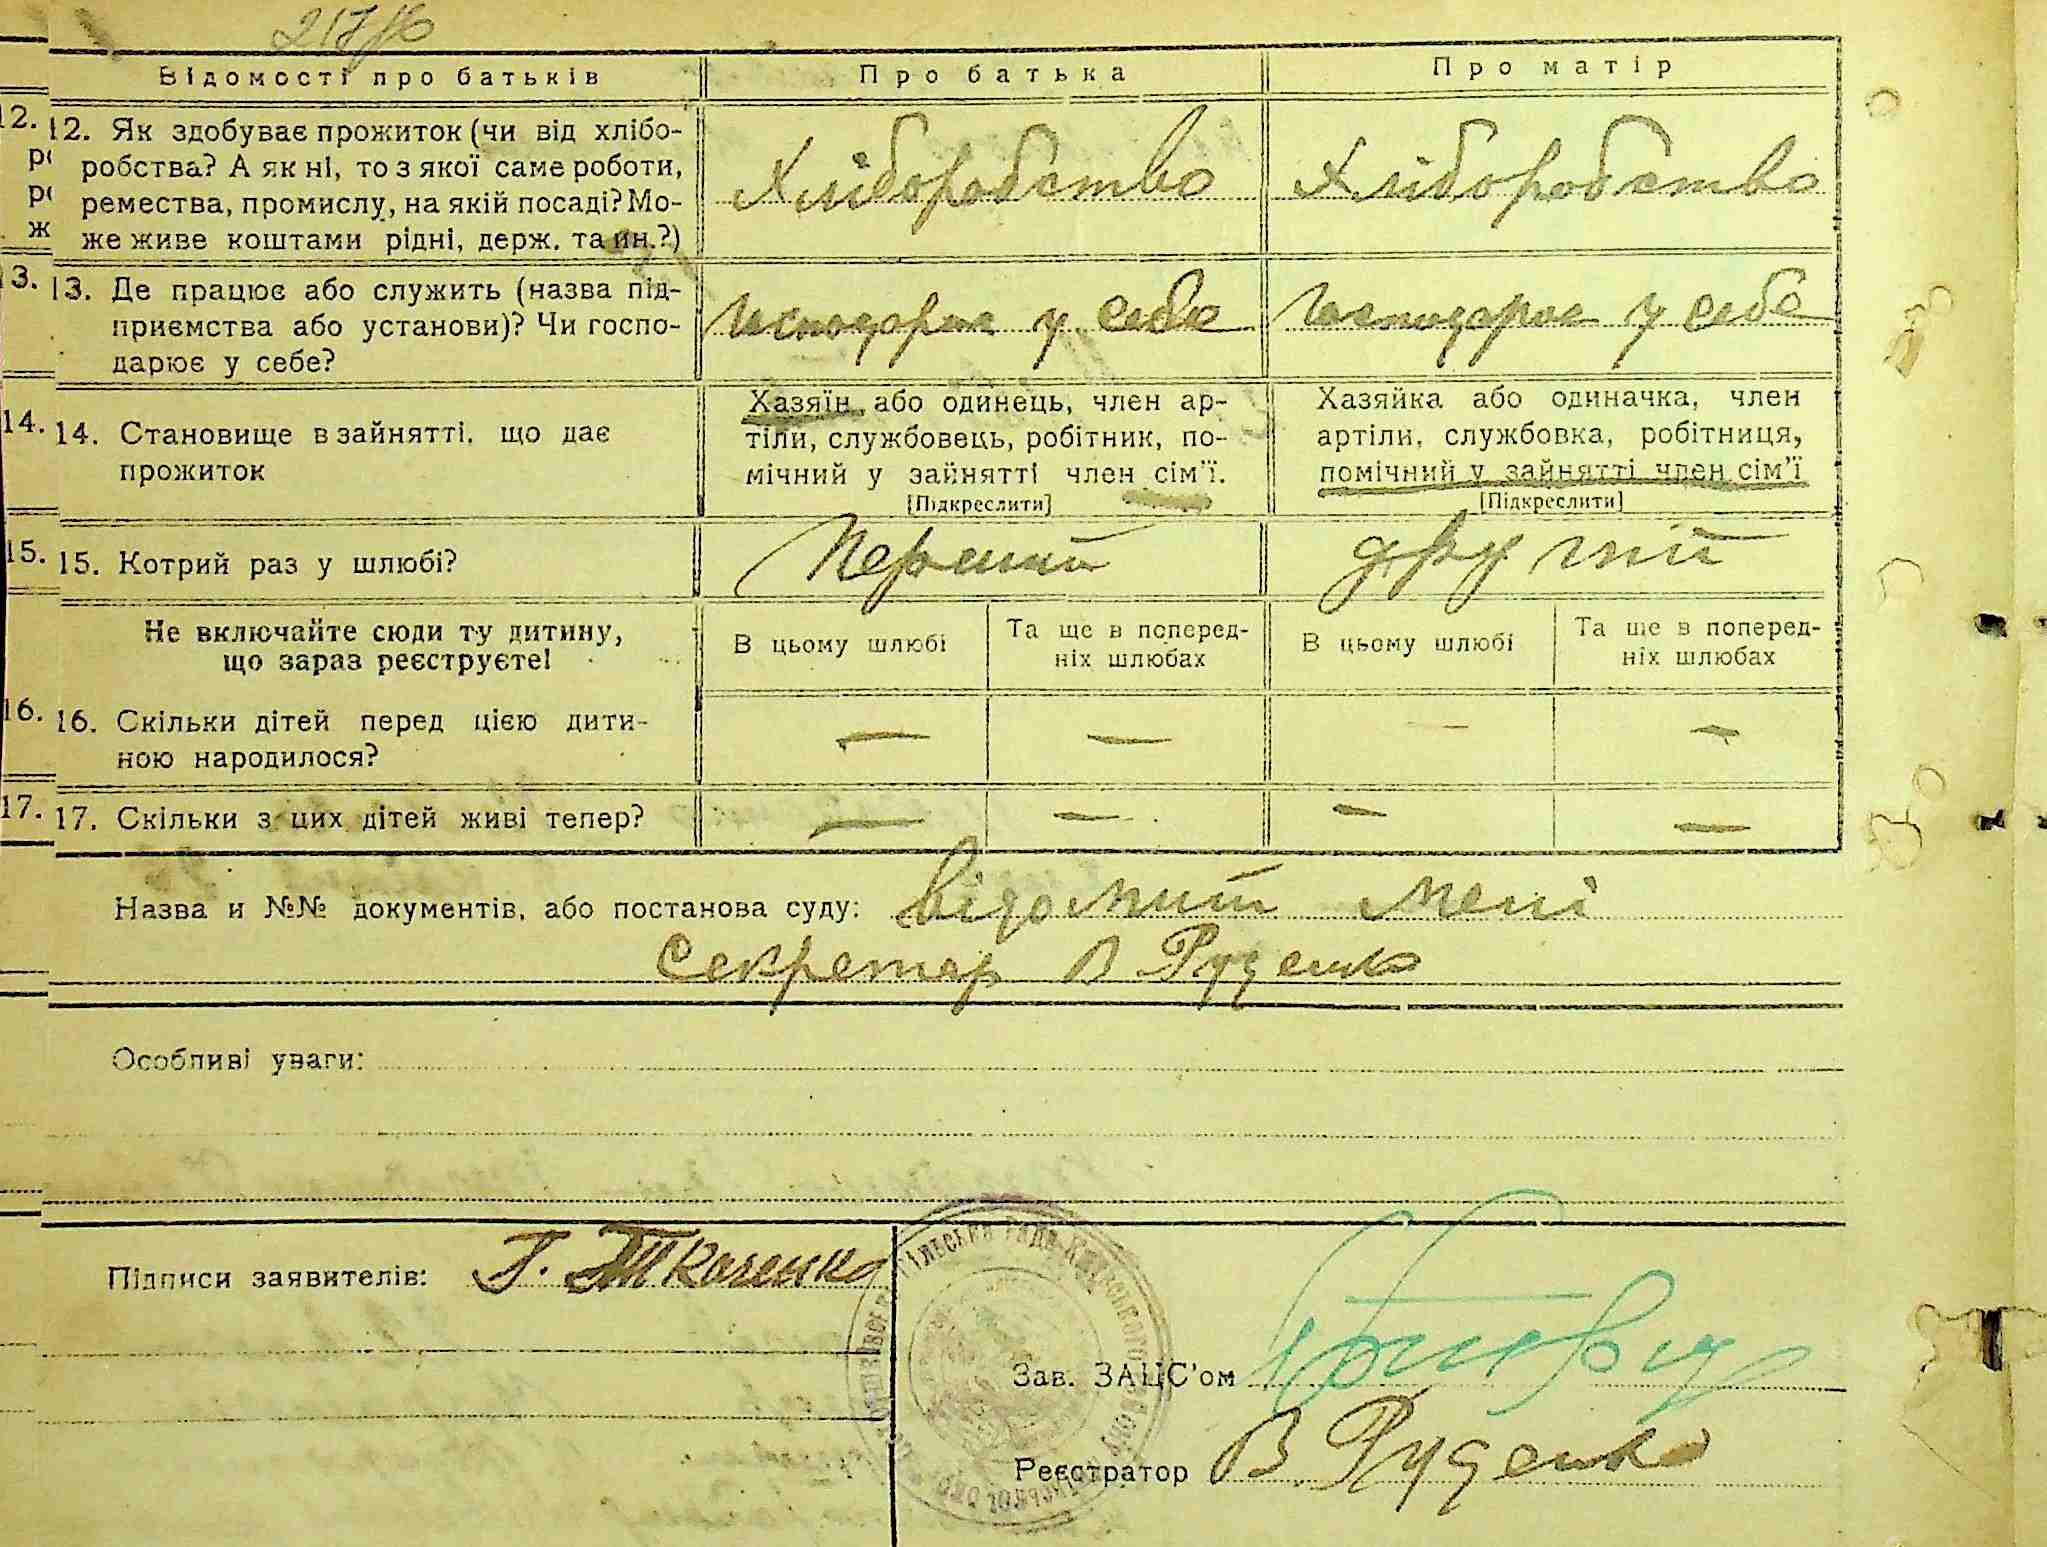 Відомості про батьків
Про батька
Про матір
12. Як здобуває прожиток (чи від хлібо-
робства? А як ні, то з якої саме роботи,
ремества, промислу, на якій посаді? Мо-
же живе коштами рідні, держ. та ин.?)
Хліборобство
Хліборобство
13. Де працює або служить (назва під-
приємства або установи)? Чи госпо-
дарює у себе?
господарює у себе
господарює у себе
14. Становище в зайнятті, що дає
прожиток
Хазяїн або одинець, член ар-
тіли, службовець, робітник, по-
мічний у зайнятті член сім'ї.
[Підкреслити]
Хазяйка або одиначка, член
артіли, службовка, робітниця,
помічний у зайнятті член сім'ї
[Підкреслити]
15. Котрий раз у шлюбі?
Перший
другий
Не включайте сюди ту дитину,
що зараз реєструєте!
В цьому шлюбі
Та ще в поперед-
ніх шлюбах
В цьому шлюбі
Та ще в поперед-
ніх шлюбах
16. Скільки дітей перед цією дити-
ною народилося?
— — — —
17. Скільки з цих дітей живі тепер?
— — — —
Назва и №№ документів, або постанова суду: відомий мені
секретар В Руденко
Особливі уваги:
Підписи заявителів: Т. Ткаченко
Зав. ЗАЦС'ом
Реєстратор В. Руденко
12.
13.
14.
15.
16.
17.